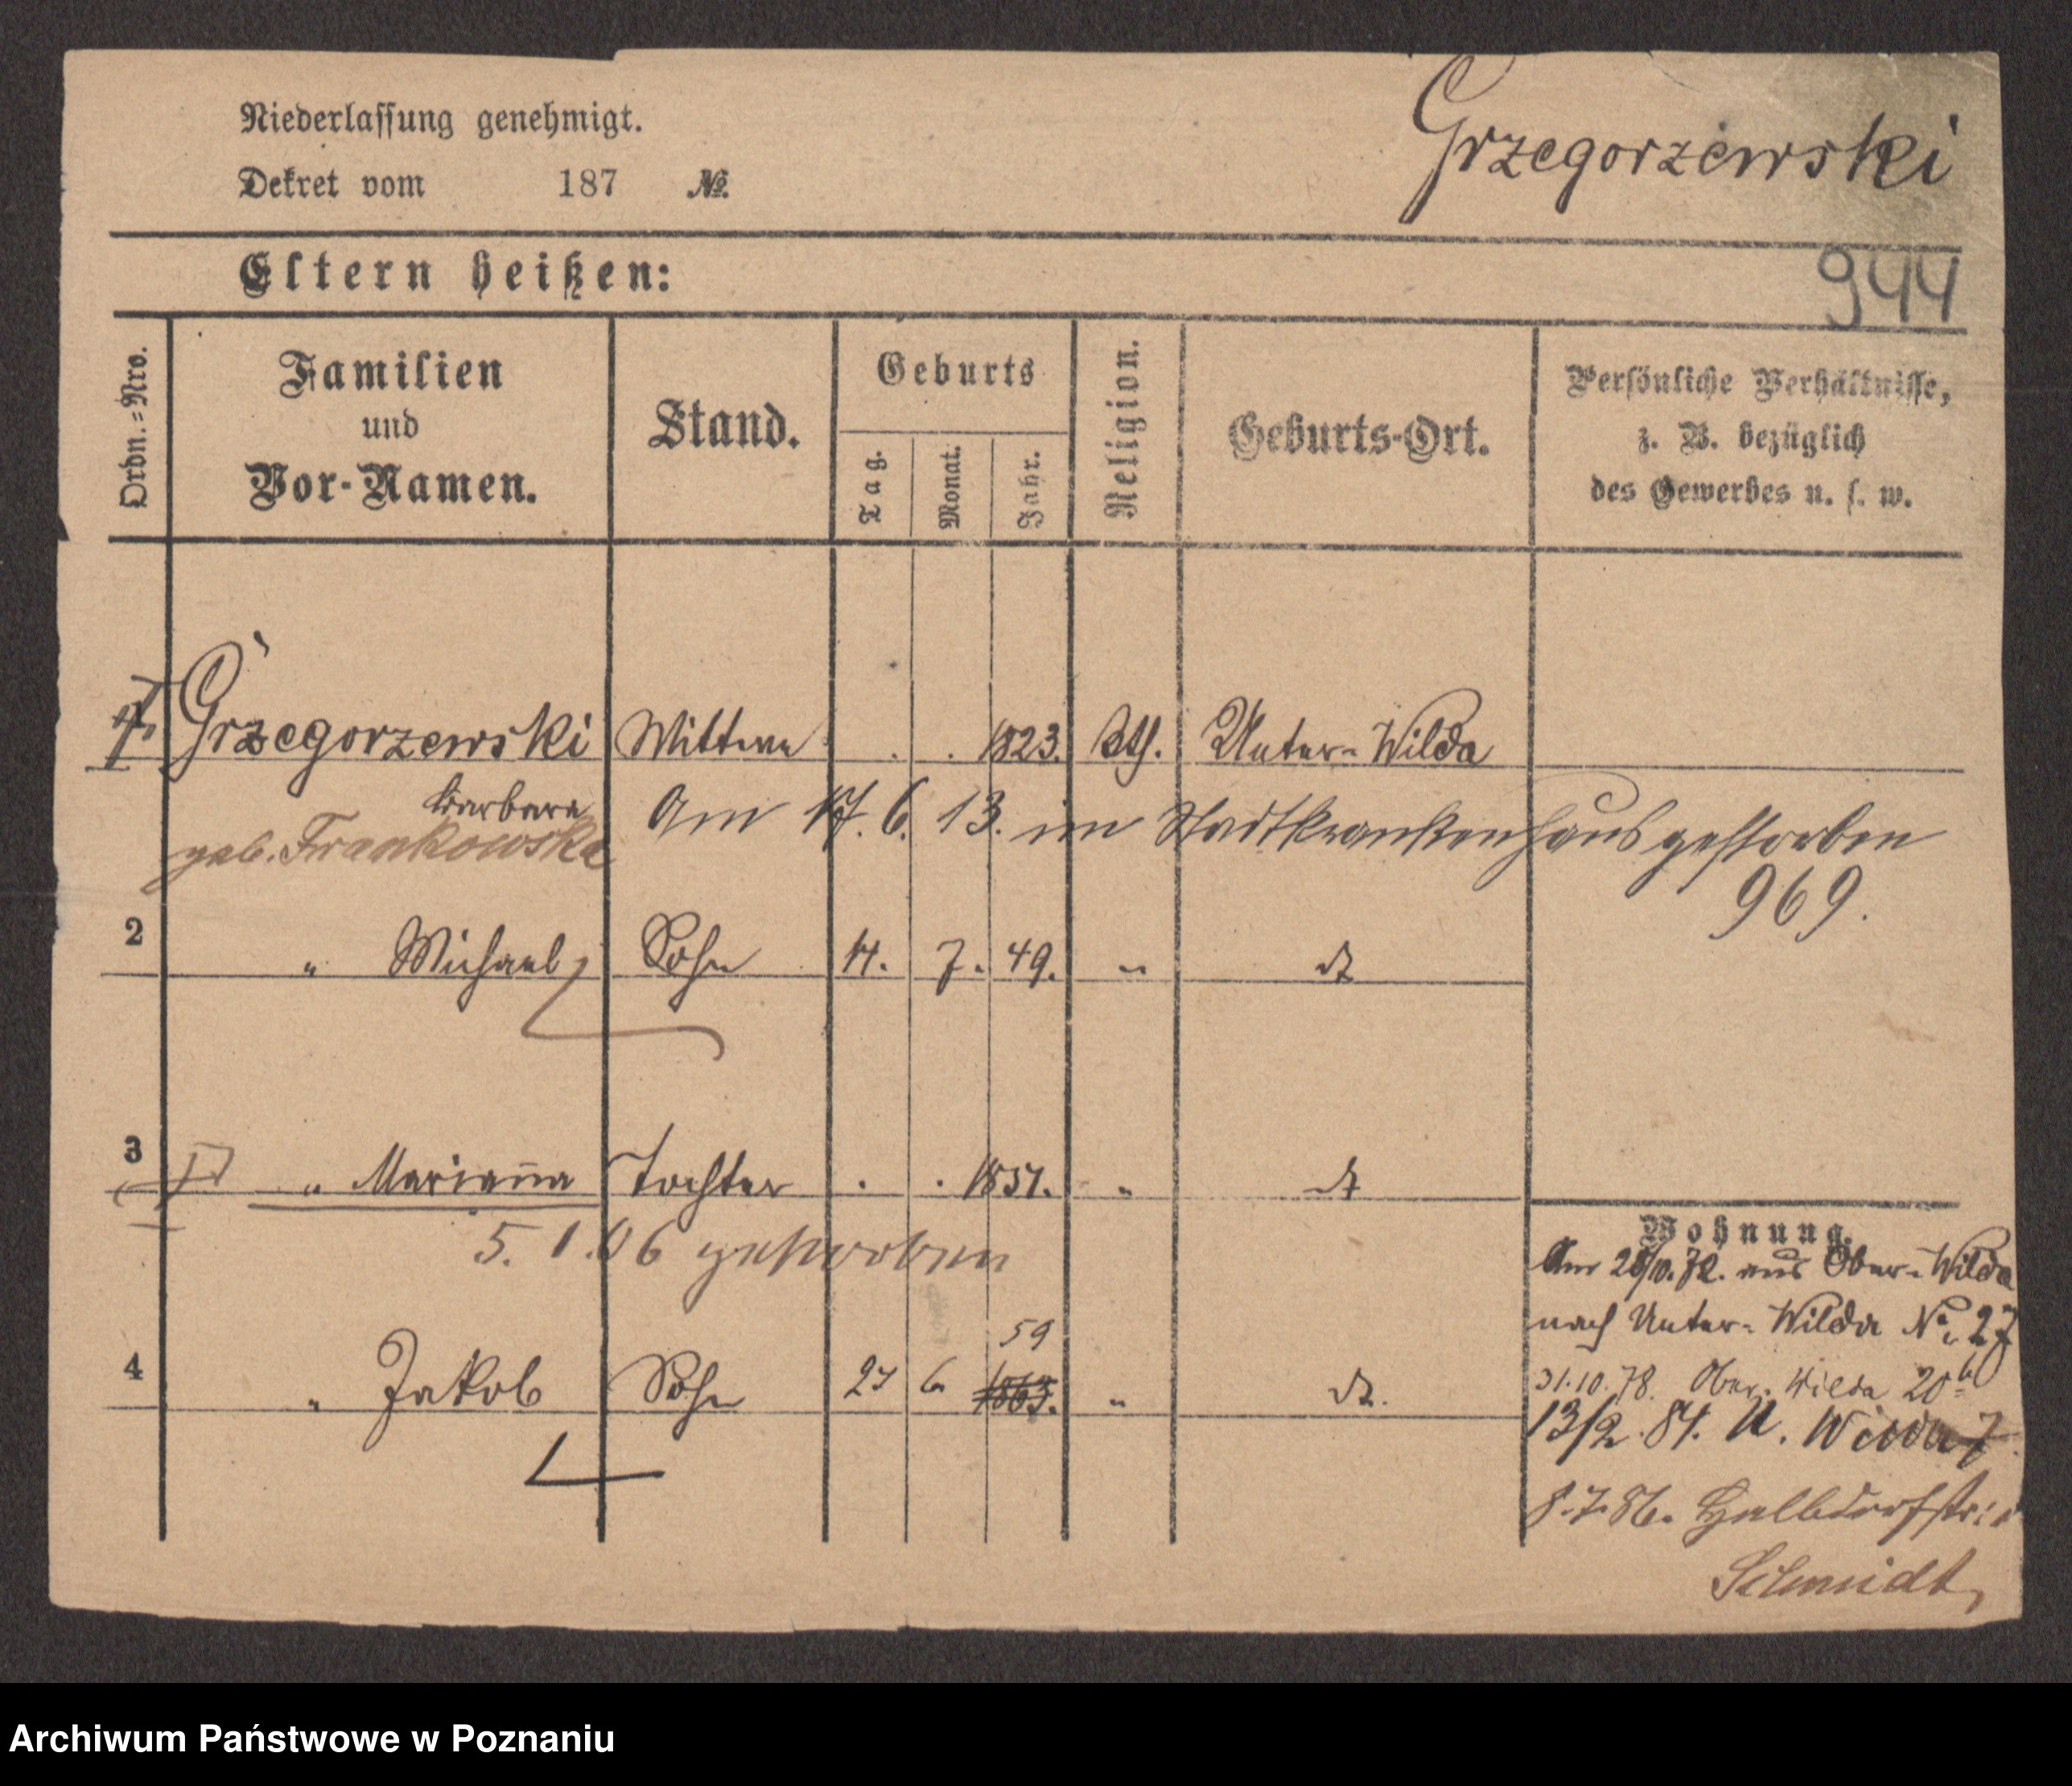 Niederlassung genehmigt.
Grzegorzewski
Dekret vom 187 №.
Eltern heißen:
944
Ordn.=Nro.
Familien
und
Vor-Namen.
Stand.
Geburts
Tag.
Monat.
Jahr.
Religion.
Geburts-Ort.
Persönliche Verhältnisse,
z. B. bezüglich
des Gewerbes u. s. w.
Grzegorzewski Wittwe . . 1823. Kth. Unter-Wilda
Barbara
geb. Frankowska
Am 17. 6. 13. im Stadtkrankenhaus gestorben
969.
2 " Michael Sohn 14. 7. 49. "
3 " Marianna Tochter . . 1857. "
5. 1. 06 gestorben
59
4 " Jakob Sohn 27 6. 1863. "
Wohnung.
Am 28/10.72. aus Ober-Wilda
nach Unter-Wilda No 27
31.10.78. Ober-Wilda 20b
13/2.84. U. Wilda 7
8.7.86. Halbdorfstr:
Schmidt,
Archiwum Państwowe w Poznaniu